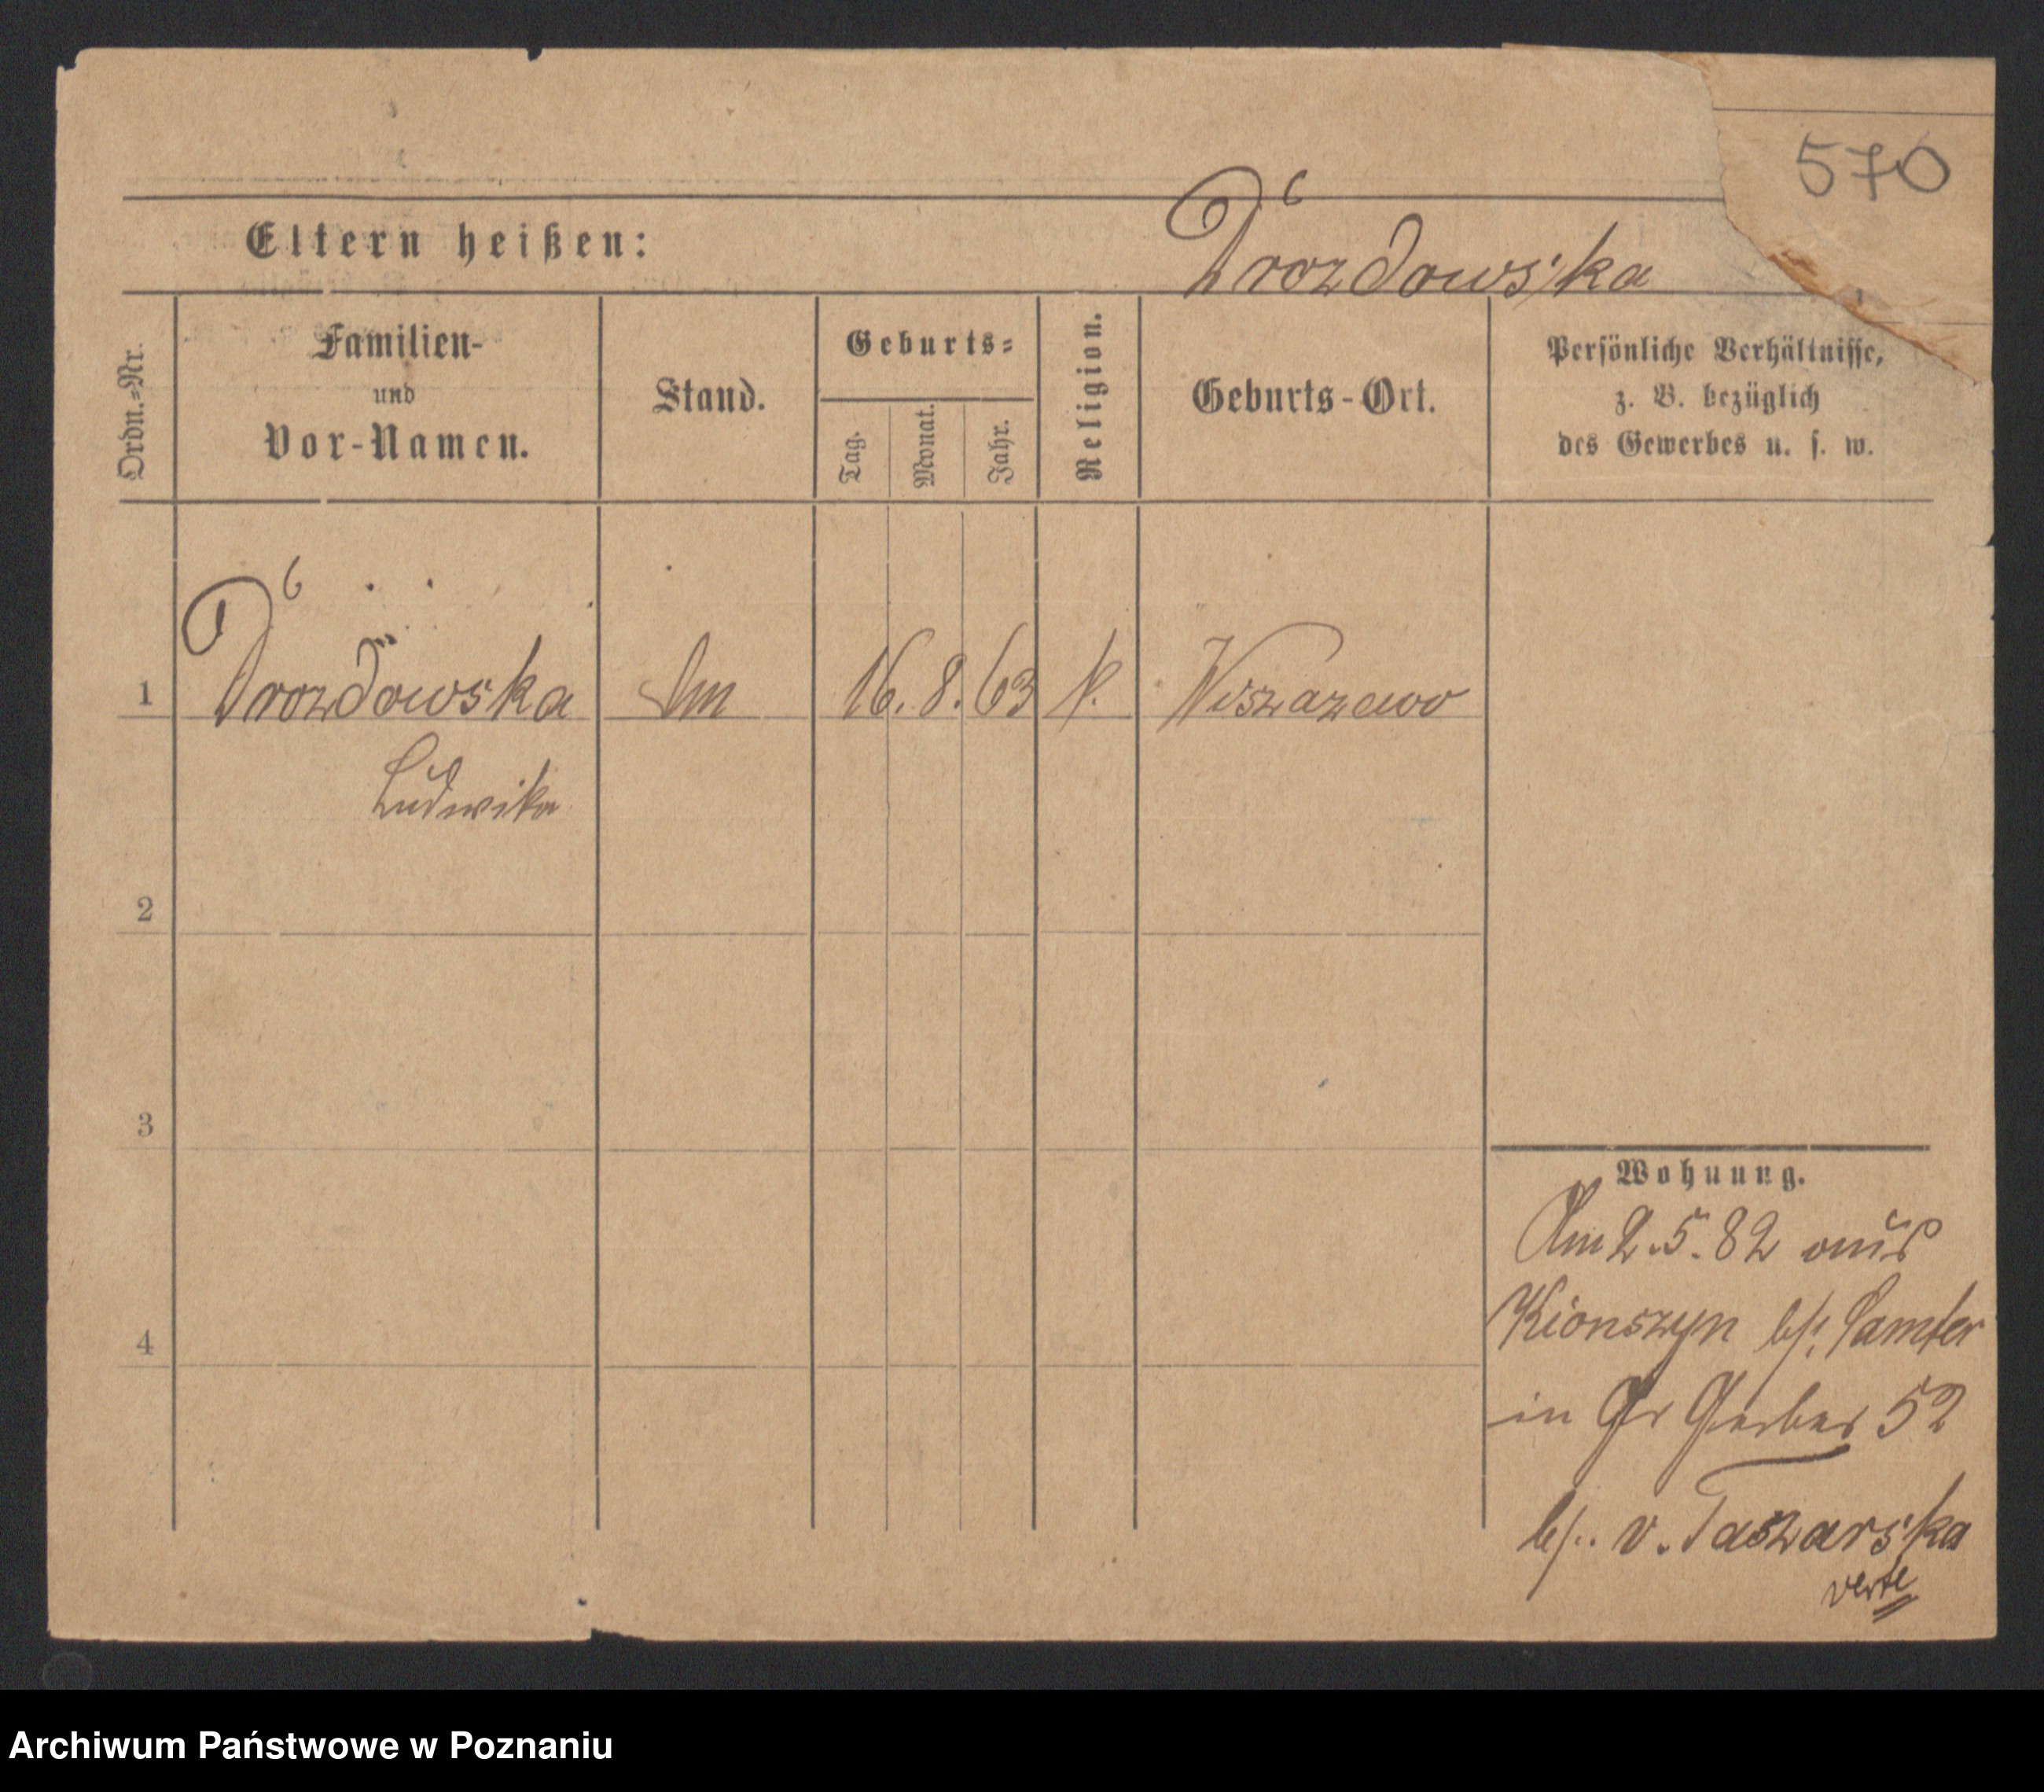 570
Eltern heißen:
Drozdowska
Ordn.-Nr.
Familien-
und
Vor-Namen.
Stand.
Geburts-
Tag.
Monat.
Jahr.
Religion.
Geburts-Ort.
Persönliche Verhältnisse,
z. B. bezüglich
des Gewerbes u. s. w.
1 Drozdowska 16. 8. 63 k.
Ludwika
2
3
4
Wohnung.
Am 2.5.82 aus
Kionszyn b/. Samter
in Gr Gerber 52
b/. v. Taszarska
verte
Archiwum Państwowe w Poznaniu